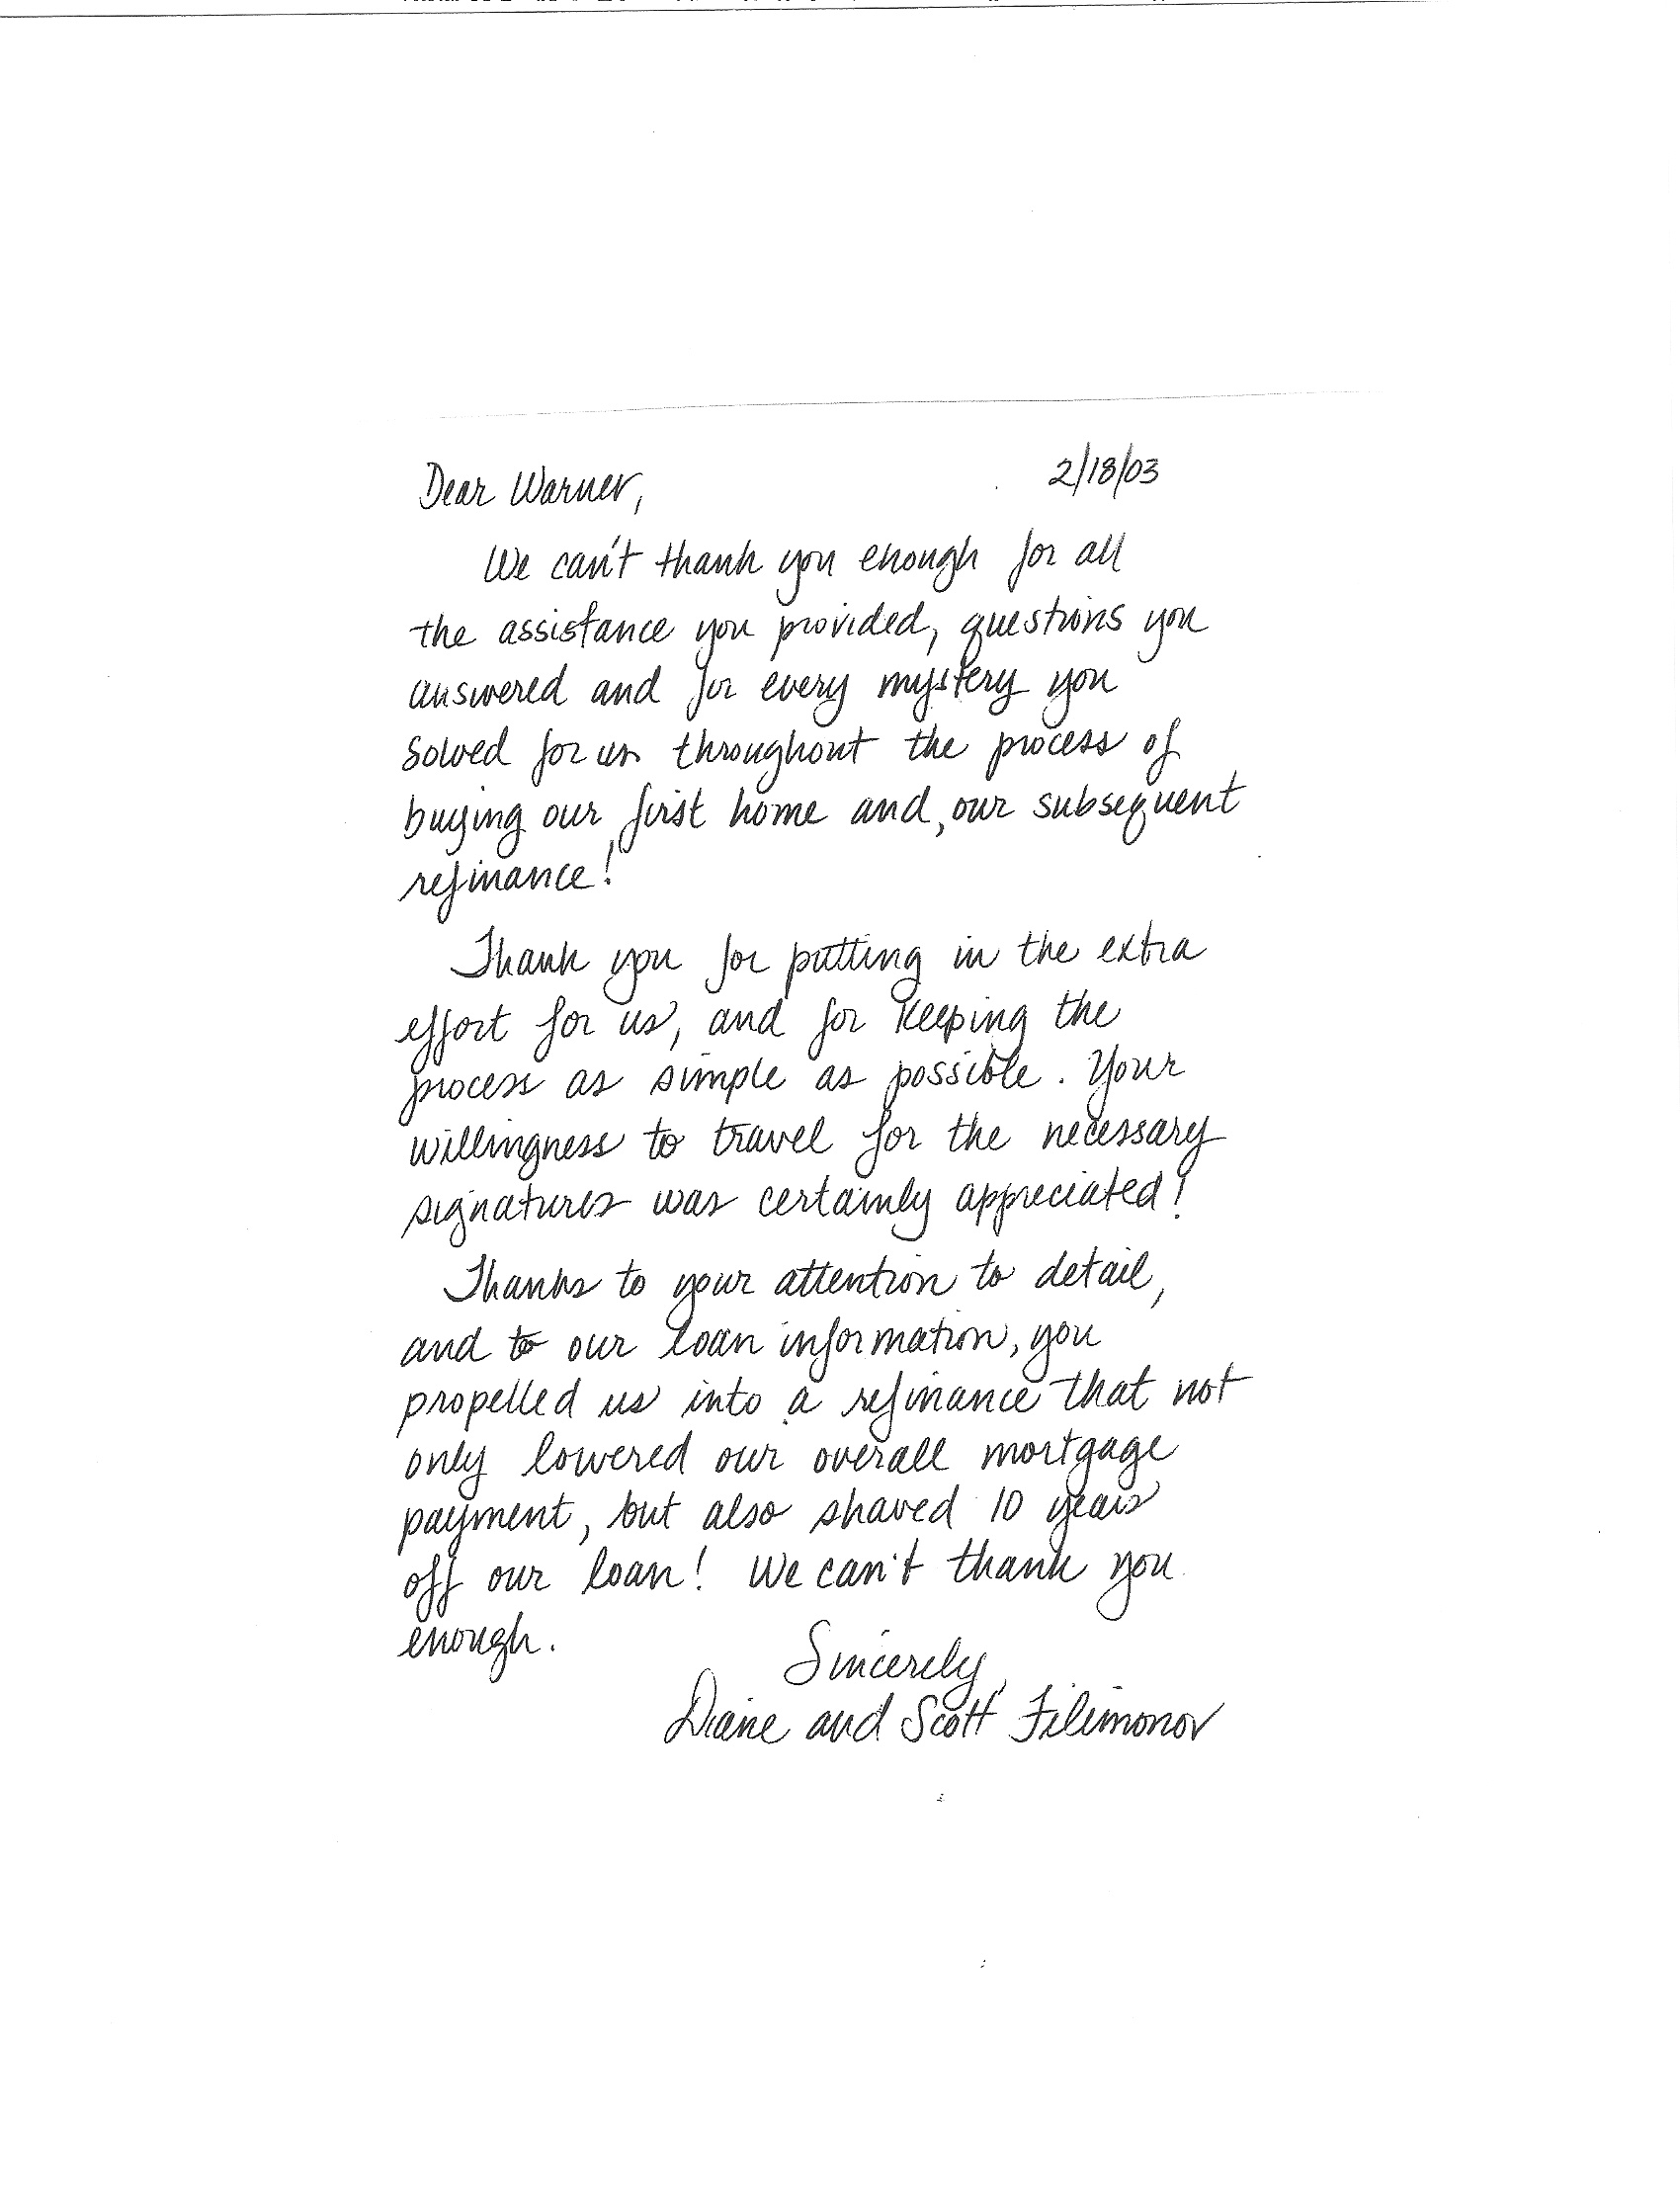 Dear Warner, 2/18/03
We can't thank you enough for all
the assistance you provided, questions you
answered and for every mystery you
solved for us throughout the process of
buying our first home and, our subsequent
refinance!
Thank you for putting in the extra
effort for us, and for keeping the
process as simple as possible. Your
willingness to travel for the necessary
signatures was certainly appreciated!
Thanks to your attention to detail,
and to our loan information, you
propelled us into a refinance that not
only lowered our overall mortgage
payment, but also shaved 10 years
off our loan! We can't thank you
enough.
Sincerely,
Diane and Scott Filimonov